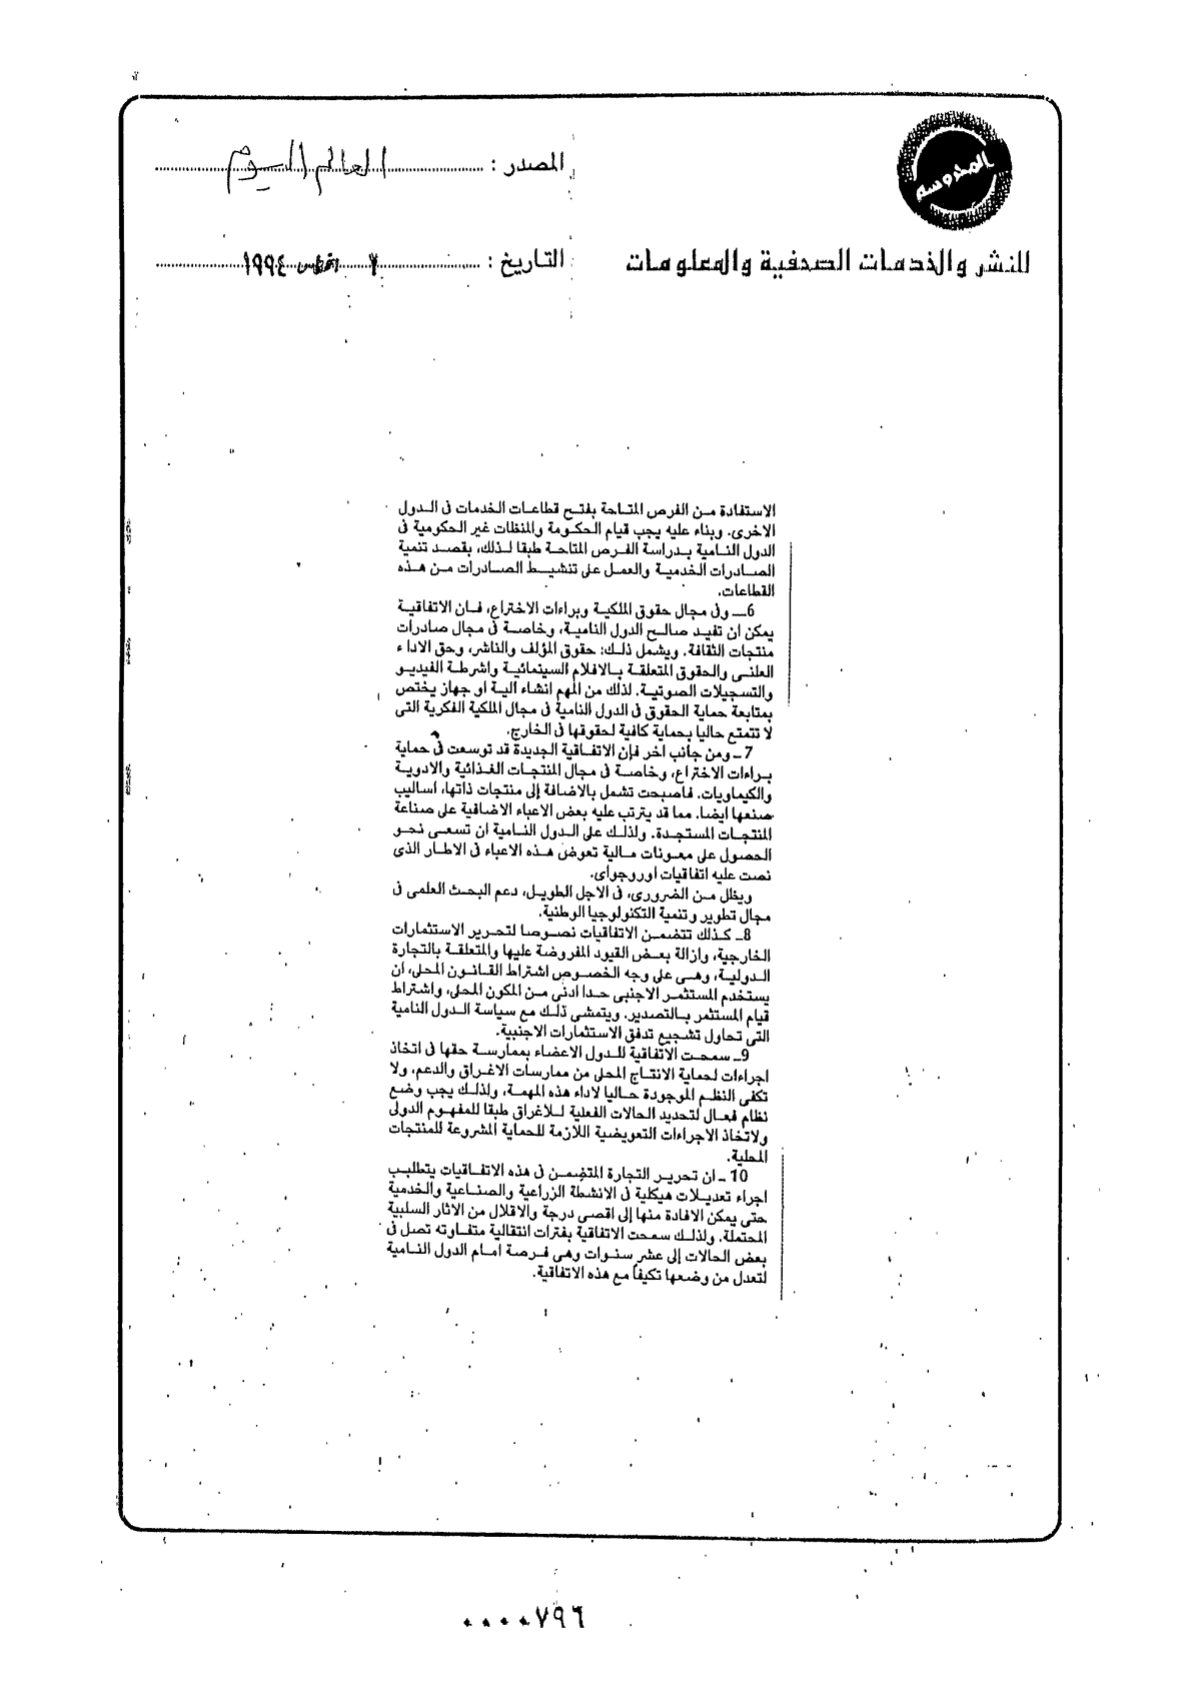 المحروسه
للنشر والخدمات الصحفية والمعلومات
المصدر : العالم اليوم
التاريخ : ٧ اغسطس ١٩٩٤
الاستفادة من الفرص المتاحة بفتح قطاعات الخدمات فى الدول
الاخرى. وبناء عليه يجب قيام الحكومة والمنظات غير الحكومية فى
الدول النامية بدراسة الفرص المتاحة طبقا لذلك، بقصد تنمية
الصادرات الخدمية والعمل على تنشيط الصادرات من هذه
القطاعات.
6ـ وفى مجال حقوق الملكية وبراءات الاختراع، فان الاتفاقية
يمكن ان تفيد صالح الدول النامية، وخاصة فى مجال صادرات
منتجات الثقافة. ويشمل ذلك: حقوق المؤلف والناشر، وحق الاداء
العلنى والحقوق المتعلقة بالافلام السينمائية واشرطة الفيديو
والتسجيلات الصوتية. لذلك من المهم انشاء الية او جهاز يختص
بمتابعة حماية الحقوق فى الدول النامية فى مجال الملكية الفكرية التى
لا تتمتع حاليا بحماية كافية لحقوقها فى الخارج.
7ـ ومن جانب اخر فإن الاتفاقية الجديدة قد توسعت فى حماية
براءات الاختراع، وخاصة فى مجال المنتجات الغذائية والادوية
والكيماويات. فاصبحت تشمل بالاضافة إلى منتجات ذاتها، اساليب
صنعها ايضا. مما قد يترتب عليه بعض الاعباء الاضافية على صناعة
المنتجات المستجدة. ولذلك على الدول النامية ان تسعى نحو
الحصول على معونات مالية تعوض هذه الاعباء فى الاطار الذى
نصت عليه اتفاقيات اوروجواى.
ويظل من الضرورى، فى الاجل الطويل، دعم البحث العلمى فى
مجال تطوير وتنمية التكنولوجيا الوطنية.
8ـ كذلك تتضمن الاتفاقيات نصوصا لتحرير الاستثمارات
الخارجية، وازالة بعض القيود المفروضة عليها والمتعلقة بالتجارة
الدولية، وهى على وجه الخصوص اشتراط القانون المحلى، ان
يستخدم المستثمر الاجنبى حدا ادنى من المكون المحلى، واشتراط
قيام المستثمر بالتصدير. ويتمشى ذلك مع سياسة الدول النامية
التى تحاول تشجيع تدفق الاستثمارات الاجنبية.
9ـ سمحت الاتفاقية للدول الاعضاء بممارسة حقها فى اتخاذ
اجراءات لحماية الانتاج المحلى من ممارسات الاغراق والدعم، ولا
تكفى النظم الموجودة حاليا لاداء هذه المهمة، ولذلك يجب وضع
نظام فعال لتحديد الحالات الفعلية للاغراق طبقا للمفهوم الدولى
ولاتخاذ الاجراءات التعويضية اللازمة للحماية المشروعة للمنتجات
المحلية.
10 ـ ان تحرير التجارة المتضمن فى هذه الاتفاقيات يتطلب
اجراء تعديلات هيكلية فى الانشطة الزراعية والصناعية والخدمية
حتى يمكن الافادة منها إلى اقصى درجة والاقلال من الاثار السلبية
المحتملة. ولذلك سمحت الاتفاقية بفترات انتقالية متفاوته تصل فى
بعض الحالات إلى عشر سنوات وهى فرصة امام الدول النامية
لتعدل من وضعها تكيفاً مع هذه الاتفاقية.
٠٠٠٠٧٩٦